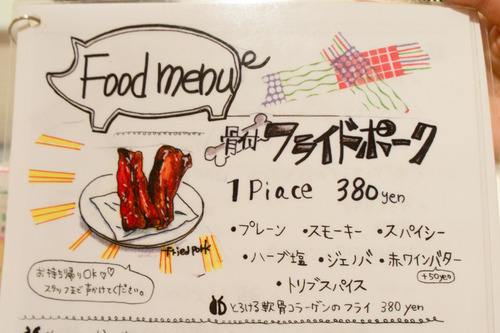 Food menu
骨付フライドポーク
1 Piace 380 yen
・プレーン ・スモーキー ・スパイシー
・ハーブ塩 ・ジェノバ ・赤ワインバター
+50yen
・トリプスパイス
Fried pork
お持ち帰りOK♡♡
スタッフまで声かけてください。
とろける軟骨コラーゲンのフライ 380 yen